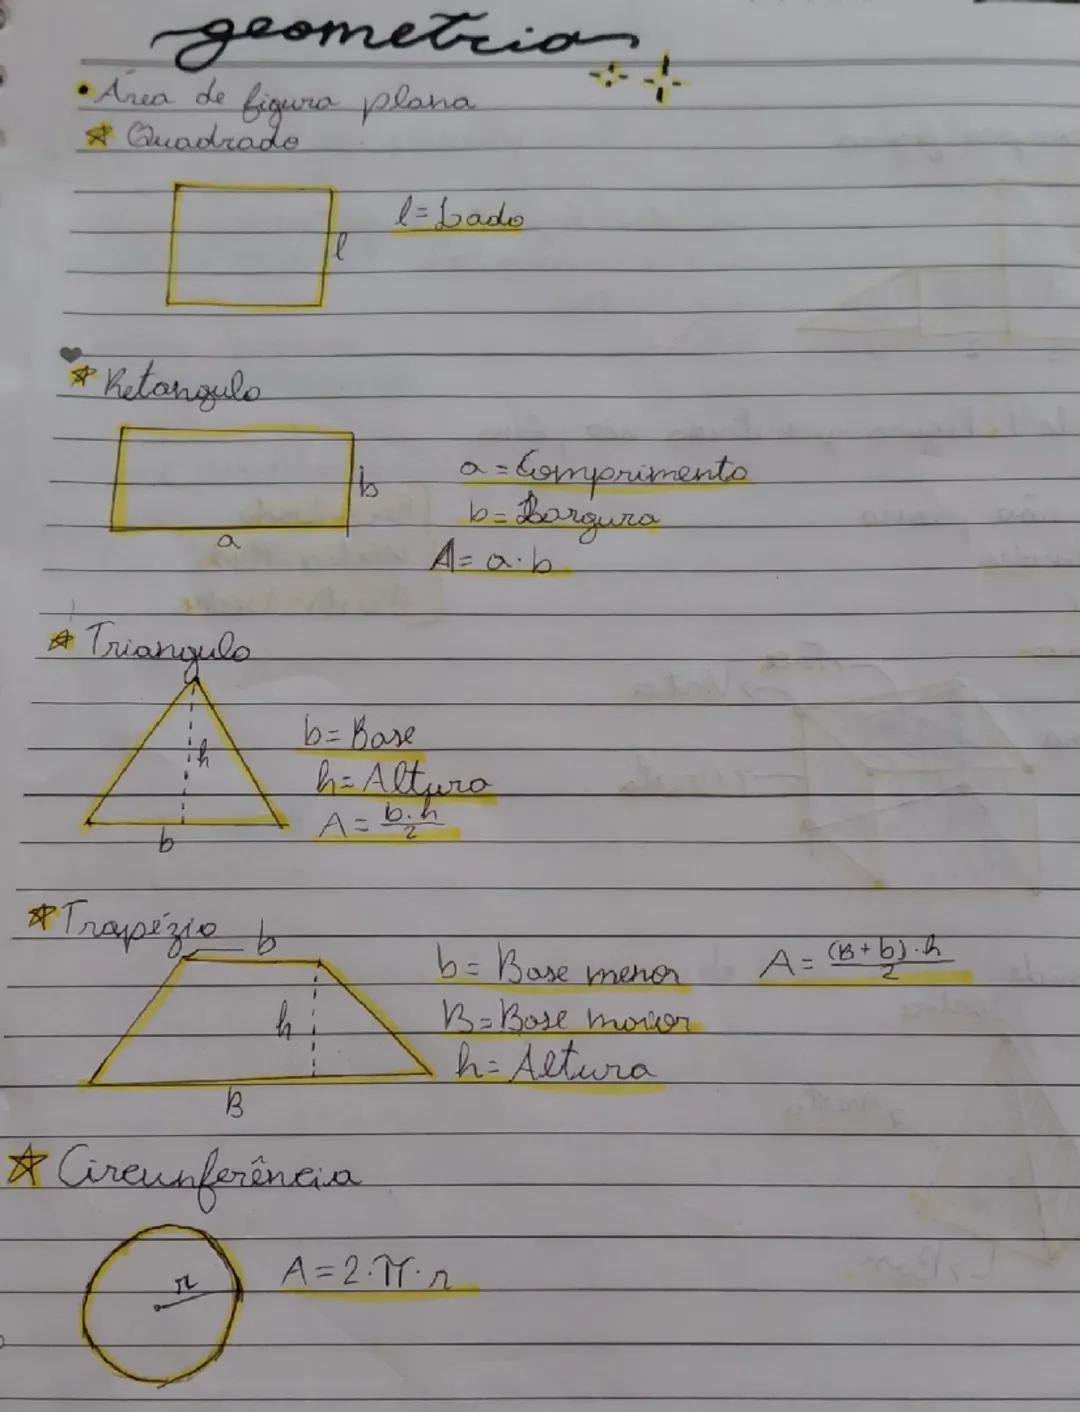 geometria
• Área de figura plana
Quadrado
l = Lado
l
Retangulo
b
a = Comprimento
b = Largura
a
A = a . b
Triangulo
h
b = Base
h = Altura
A = b . h / 2
b
Trapézio
b
b = Base menor
A = (B + b) . h / 2
h
B = Base maior
h = Altura
B
Circunferência
r
A = 2 . π . r